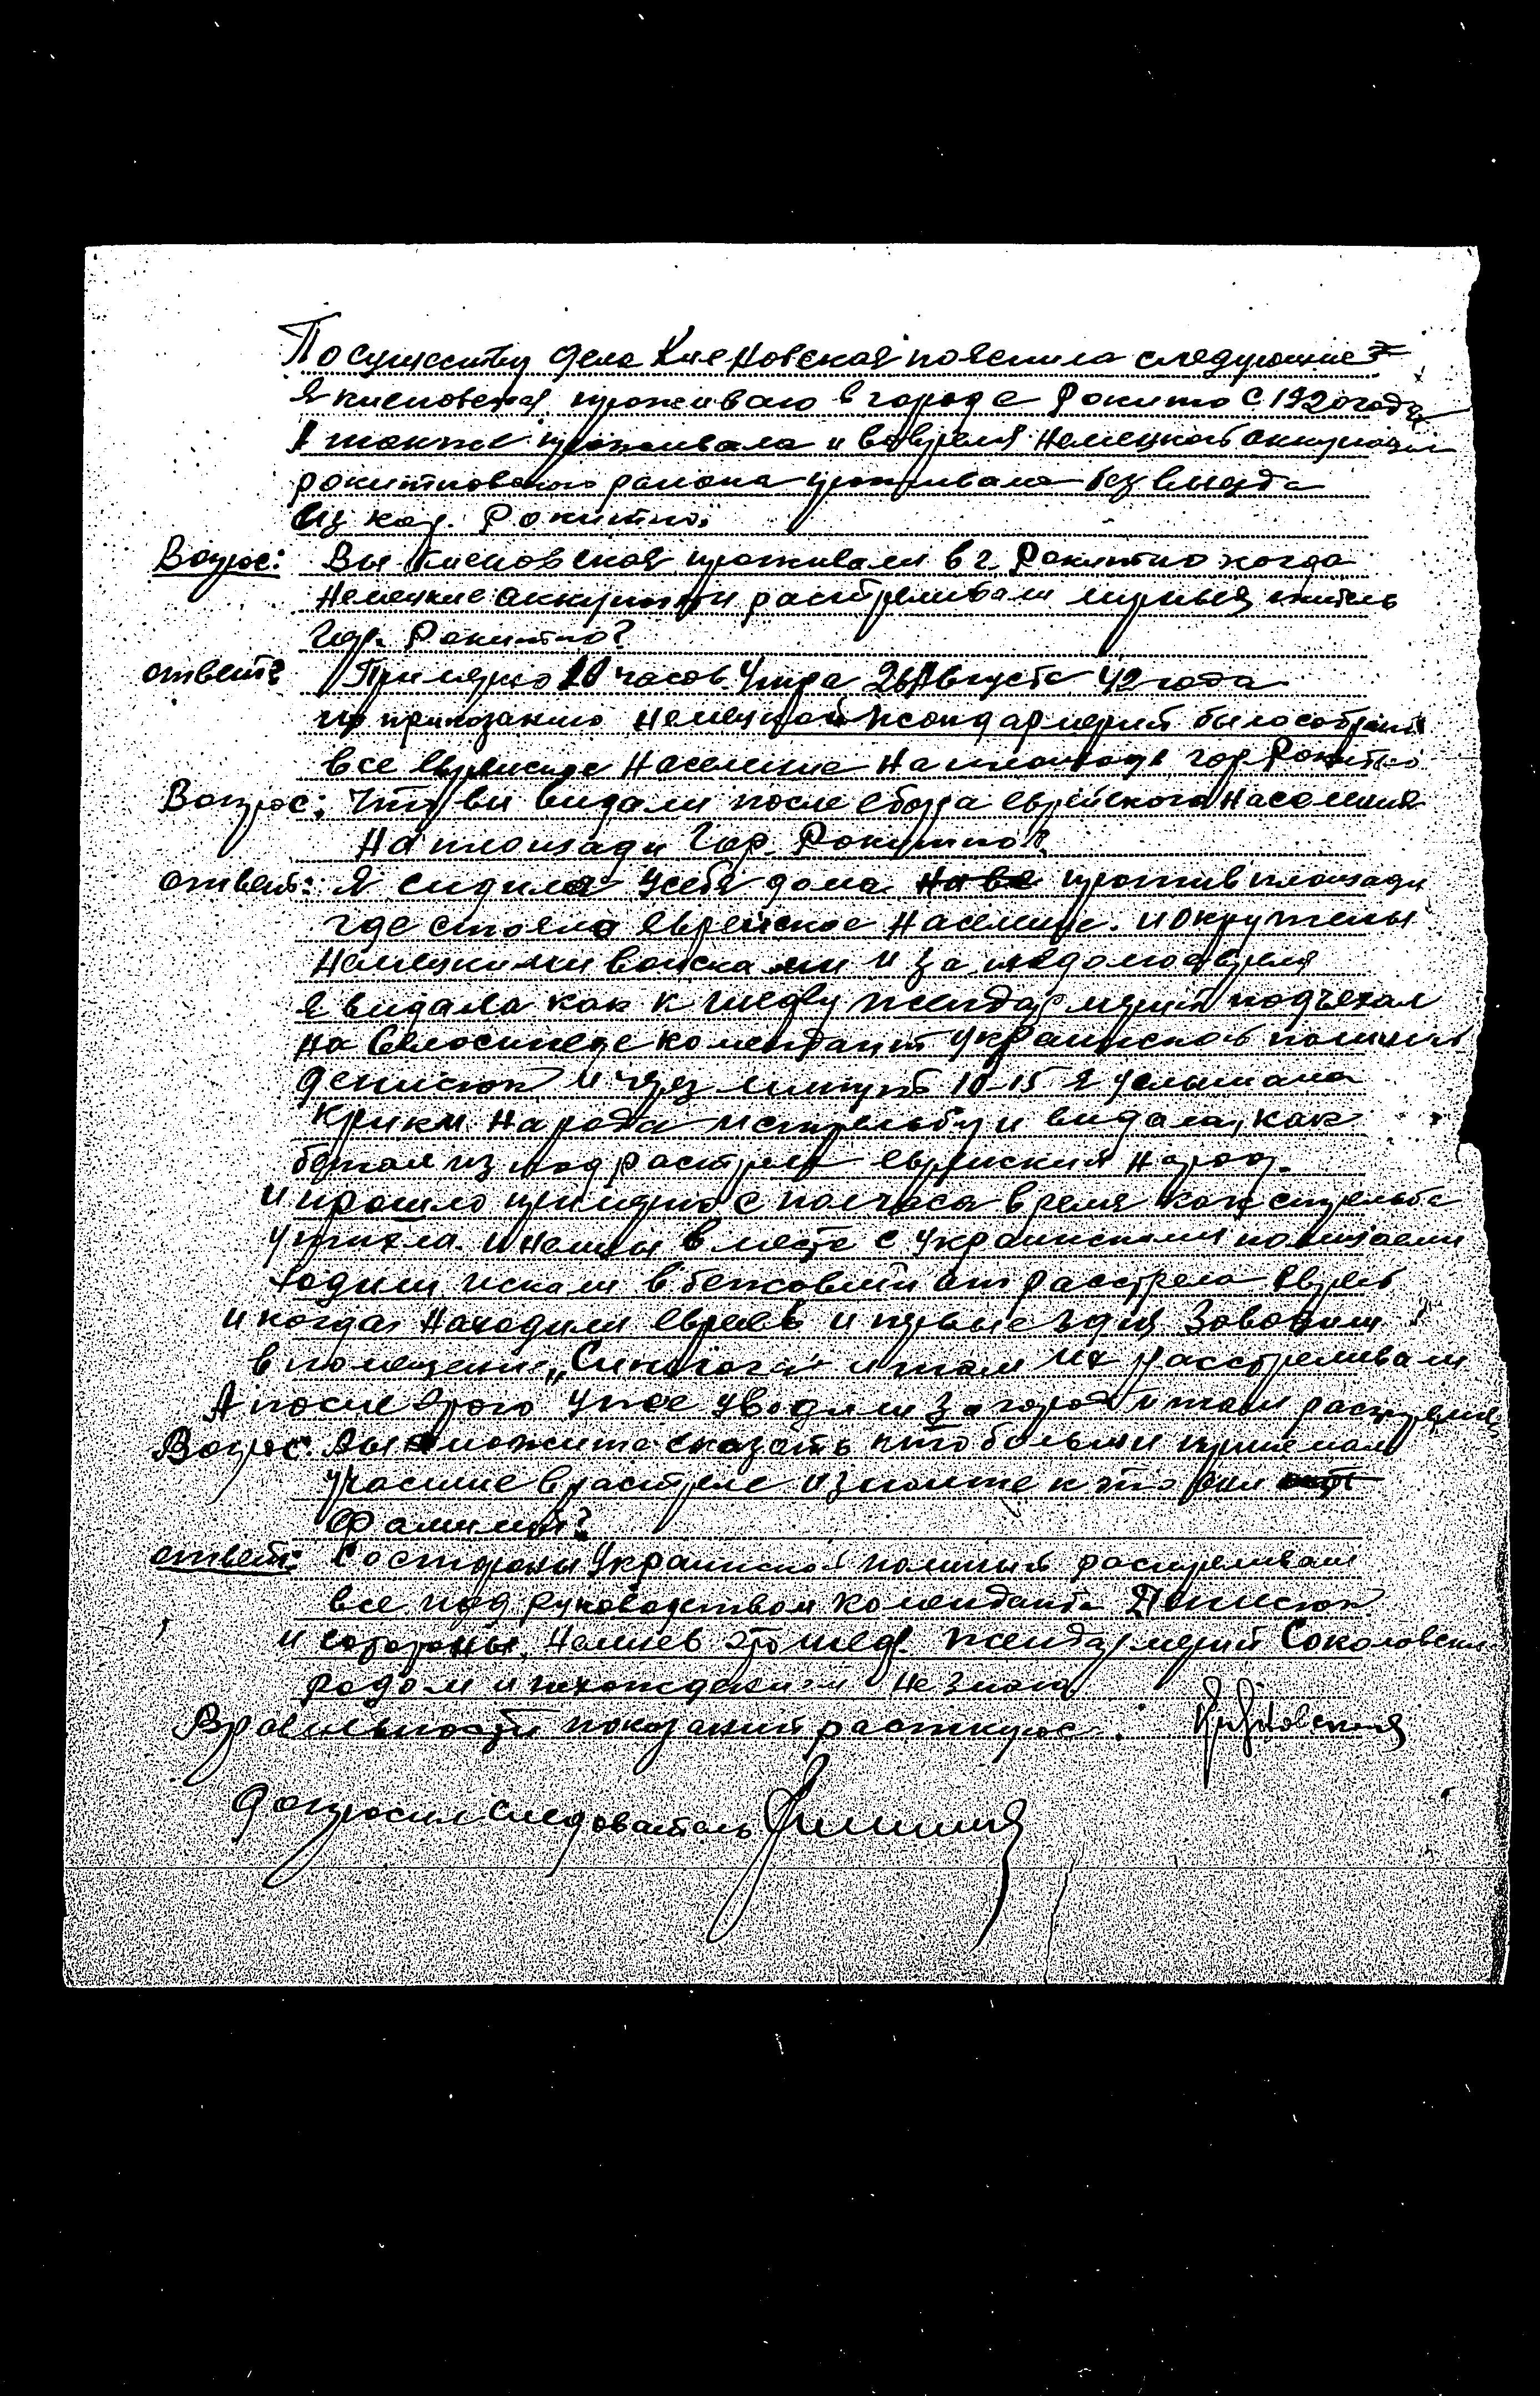 По существу дела Кисновская пояснила следующие:
Я кисновская проживаю в городе Рокитно с 1920 года
также проживала и во время Немецкой аккупации
рокитновского района проживала без выезда
Из Рокитно.
Вопрос: Вы Кисновская проживали в г. Рокитно когда
Немецкие аккупанти растреливали мирных житель
Гор. Рокитно?
ответ: Примерно 10 часов утра 26 Августа 42 года
по приказанию Немецкой жандармерий было собрано
все Еврейское Население На площаде гор Рокитно
Вопрос: Что ви видали после сбора еврейского Населения
На площади Гор. Рокитно?
ответ: Я сидила у себя дома против площади
где стояло еврейское Население. и окружены
Немецкими войсками и за недолгое время
Я видала как к шефу жандармерий подъехал
На Велосипеде комендант украинской полиции
Денисюк и через минут 10-15 я услышала
крики Народа и стрельбу и видала, как
бежал из под растрела еврейский Народ.
и прошло примерно с полчаса время как стрельба
утихла. и Немцы в месте с украинскими полицаеми
ходили искали от расстрела Евреев
и когда Находили евреев и первые
в помещение „Синагога" и там их расстреливали
А после этого уже уводили за город и там
Вопрос: Вы можите сказать кто больши принемал
участие в растреле
Фамилий?
ответ: С стороны Украинской полиций растреливали
все под руководством коменданта Денисюк
и стороны Немцев это шеф жандармерий Соколовский
родом и похождением Не знаю
В правильности показаний распишусь.
Допросил Следователь